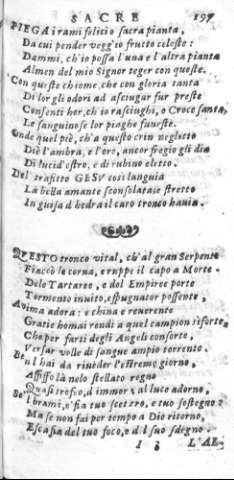 SACRE 197
PIEGA i rami felicio sacra pianta,
Da cui pender vegg'io frutto celeste:
Dammi, ch'io possa l'una e l'altra pianta
Almen del mio Signor teger con queste.
Con queste chiome, che con gloria tanta
Di lor gli odori ad asciugar fur preste
Consenti hor, ch'io rasciughi, o Croce santa,
Le sanguinose lor piaghe funeste.
Onde quel piè, ch'a questo crin neglecto
Diè l'ambra, e l'oro, ancor fregio gli dia
Di lucid'ostro, e di rubino eletto.
Del trafitto GESV così languia
La bella amante sconsolata stretto
In guisa d'hedra il caro tronco hauia.
QVESTO tronco vital, ch'al gran Serpente
Fiaccò le corna, e ruppe il capo a Morte.
De le Tartaree, e del Empiree porte
Tormento inuito, espugnator possente,
Anima adora: e china e reuerente
Gratie homai rendi a quel campion sì forte,
Che per farti degli Angeli consorte,
Versar volle di sangue ampio torrente.
Ben l'hai da riueder l'estremo giorno,
Affisso là nelo stellato regno
Quasi trofeo, d'immortal luce adorno,
Se l brami, e sia tuo scetro, e tuo sostegno:
Ma se non fai per tempo a Dio ritorno,
E scapia del tuo foco, e del suo sdegno.
I 3 L'AL-